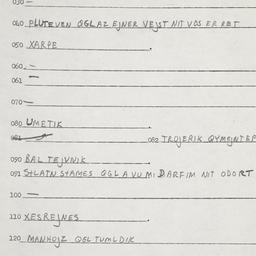 030 —
040 PLUTEVEN OGLAZ EJNER VEJST NIT VOS ER RET
050 XARPE .
060 — .
061 —
070 —
080 UMETIK .
081 082 TROJERIK, QYMEJNTER
090 BAL TEJVNIK .
091 SHLATN SHAMES OGLAVUMI DARFIM NIT ODORT
100 — .
110 XESREJNES .
120 MANHOJZ OGLTUMLDIK